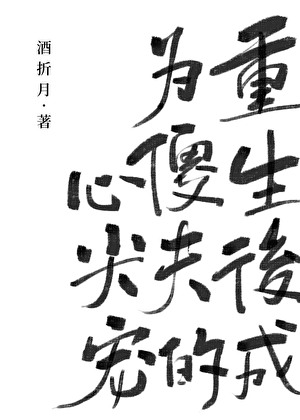 重生後成
为傻夫的
心尖宠
酒折月·著